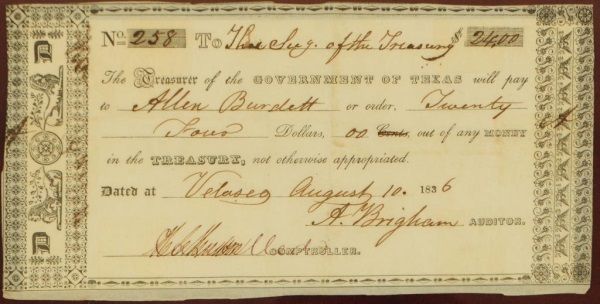 No. 258 To The Secy. of the Treasury $ 24,00
The Treasurer of the GOVERNMENT OF TEXAS will pay
to Allen Burdett or order, Twenty
Four Dollars, 00 Cents, out of any MONEY
in the TREASURY, not otherwise appropriated.
Dated at Velasco August 10. 1836
A. Brigham AUDITOR.
COMPTROLLER.